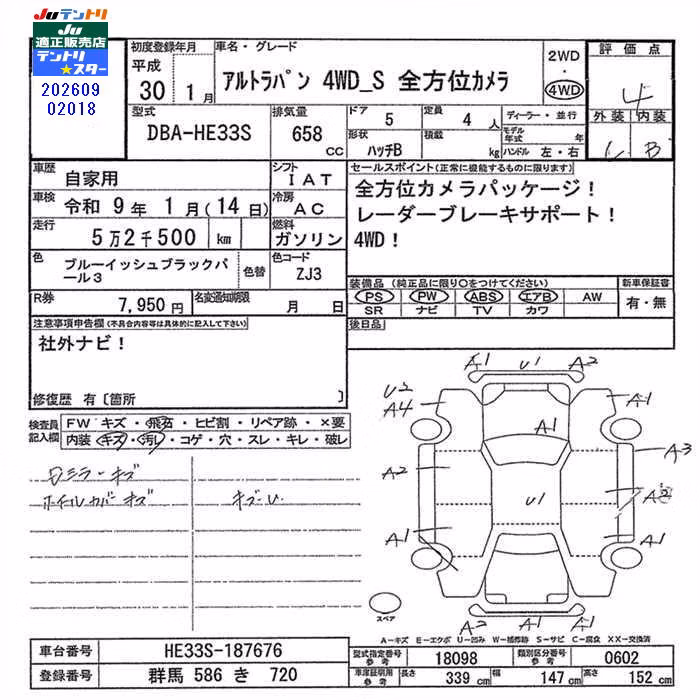 JUテントリ
JU
適正販売店
テントリ
★スター
202609
02018
初度登録年月
平成
30 1月
車名・グレード
アルトラパン 4WD_S 全方位カメラ
2WD
・
4WD
評価点
4
型式
DBA-HE33S
排気量
658
CC
ドア
5
定員
4 人
形状
ハッチB
積載
kg
ディーラー・並行
モデル年式 年
ハンドル 左・右
外装 内装
C B
車歴
自家用
シフト
IAT
車検
令和 9年 1月(14日)
冷房
AC
走行
5万2千500 km
燃料
ガソリン
色
ブルーイッシュブラックパ
ール3
色替
色コード
ZJ3
R券
7,950円
名変通知期限
月 日
セールスポイント(正常に機能するものに限ります)
全方位カメラパッケージ!
レーダーブレーキサポート!
4WD!
装備品(純正品に限り○をつけてください)
新車保証書
PS PW ABS エアB AW
有・無
SR ナビ TV カワ
後日品
注意事項申告欄(不具合内容等は具体的に記入して下さい)
社外ナビ!
修復歴 有〔箇所 〕
検査員
記入欄
FW キズ・飛石・ヒビ割・リペア跡・×要
内装 キズ・汚レ・コゲ・穴・スレ・キレ・破レ
ロミラーキズ
ホイルカバーキズ
キズ・U
A1 U1 A2
U2
A4
A1
A1
A2
A3
U1
A2
A1
A1
A1
A2
スペア
A-キズ E-エクボ U-凹み W-補修跡 S-サビ C-腐食 XX-交換済
車台番号
HE33S-187676
登録番号
群馬 586 き 720
型式指定番号
参考
18098
類別区分番号
参考
0602
車庫証明用
参考
長さ
339 cm
幅
147 cm
高さ
152 cm